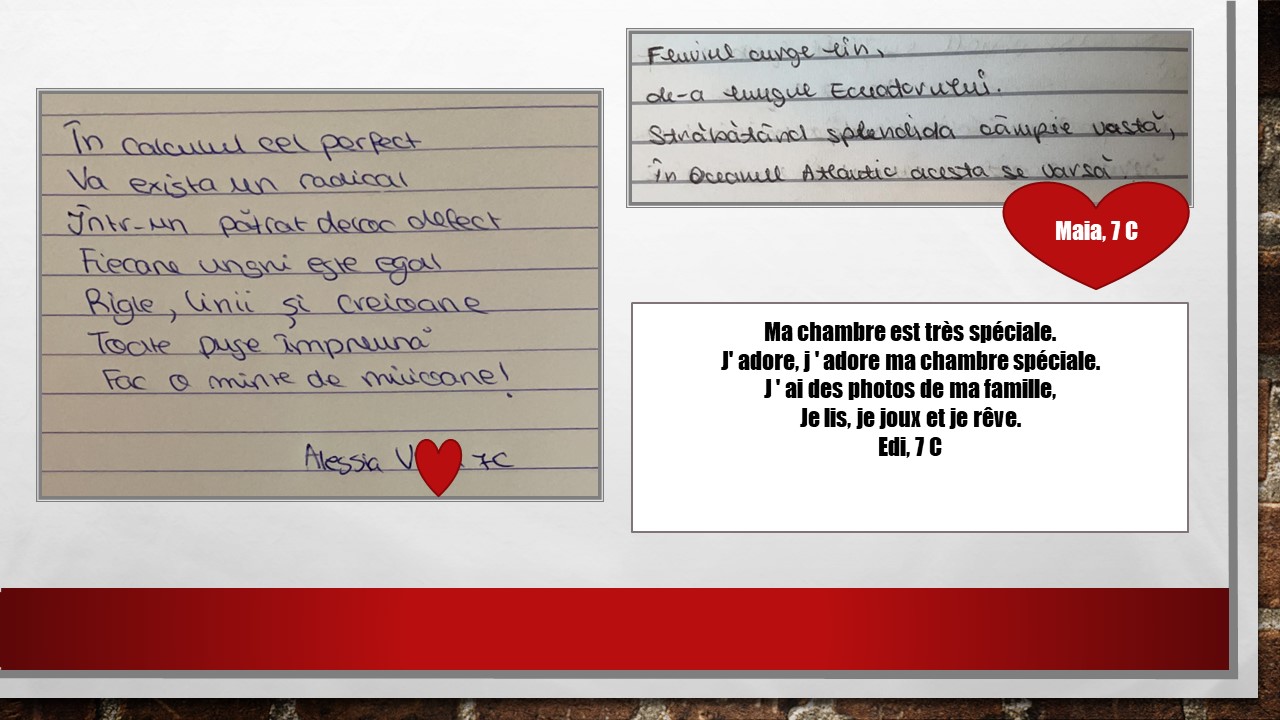 În calculul cel perfect
Va exista un radical
Într-un pătrat deloc defect
Fiecare unghi este egal
Rigle, linii și creioane
Toate puse împreună
Fac o minte de milioane!
Alessia V 7C
Fluviul curge lin,
de-a lungul Ecuadorului.
Străbătând splendida câmpie vastă,
în Oceanul Atlantic acesta se varsă.
Maia, 7 C
Ma chambre est très spéciale.
J' adore, j ' adore ma chambre spéciale.
J ' ai des photos de ma famille,
Je lis, je joux et je rêve.
Edi, 7 C